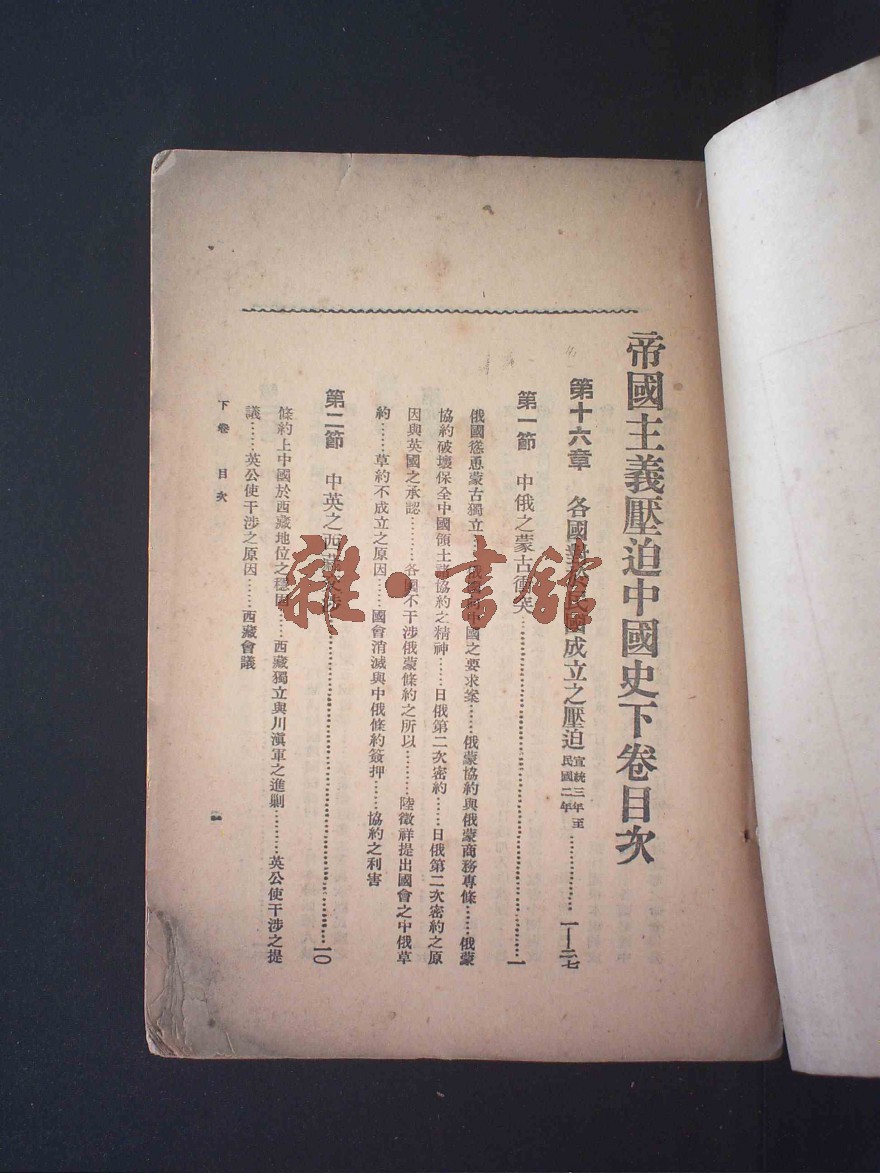 帝國主義壓迫中國史下卷目次
第十六章 各國對於民國成立之壓迫 宣統三年至民國二年………………一—二七
第一節 中俄之蒙古衝突………………一
俄國慫恿蒙古獨立……俄國對中國之要求案……俄蒙協約與俄蒙商務專條……俄蒙
協約破壞保全中國領土諸協約之精神……日俄第二次密約……日俄第二次密約之原
因與英國之承認……各國不干涉俄蒙條約之所以……陸徵祥提出國會之中俄草
約……草約不成立之原因……國會消滅與中俄條約簽押……協約之利害
第二節 中英之西藏交涉………………一〇
條約上中國於西藏地位之穩固……西藏獨立與川滇軍之進剿……英公使干涉之提
議……英公使干涉之原因……西藏會議
下卷 目次
雜·書館